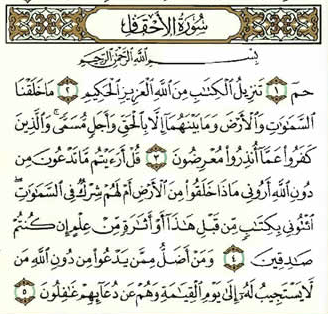 سُورَةُ الأَحْقَافِ
بِسْمِ اللَّهِ الرَّحْمَٰنِ الرَّحِيمِ
حمٓ ١ تَنزِيلُ ٱلْكِتَٰبِ مِنَ ٱللَّهِ ٱلْعَزِيزِ ٱلْحَكِيمِ ٢ مَا خَلَقْنَا
ٱلسَّمَٰوَٰتِ وَٱلْأَرْضَ وَمَا بَيْنَهُمَآ إِلَّا بِٱلْحَقِّ وَأَجَلٍ مُّسَمًّى ۚ وَٱلَّذِينَ
كَفَرُوا۟ عَمَّآ أُنذِرُوا۟ مُعْرِضُونَ ٣ قُلْ أَرَءَيْتُم مَّا تَدْعُونَ مِن
دُونِ ٱللَّهِ أَرُونِى مَاذَا خَلَقُوا۟ مِنَ ٱلْأَرْضِ أَمْ لَهُمْ شِرْكٌ فِى ٱلسَّمَٰوَٰتِ ۖ
ٱئْتُونِى بِكِتَٰبٍ مِّن قَبْلِ هَٰذَآ أَوْ أَثَٰرَةٍ مِّنْ عِلْمٍ إِن كُنتُمْ
صَٰدِقِينَ ٤ وَمَنْ أَضَلُّ مِمَّن يَدْعُوا۟ مِن دُونِ ٱللَّهِ مَن
لَّا يَسْتَجِيبُ لَهُۥٓ إِلَىٰ يَوْمِ ٱلْقِيَٰمَةِ وَهُمْ عَن دُعَآئِهِمْ غَٰفِلُونَ ٥